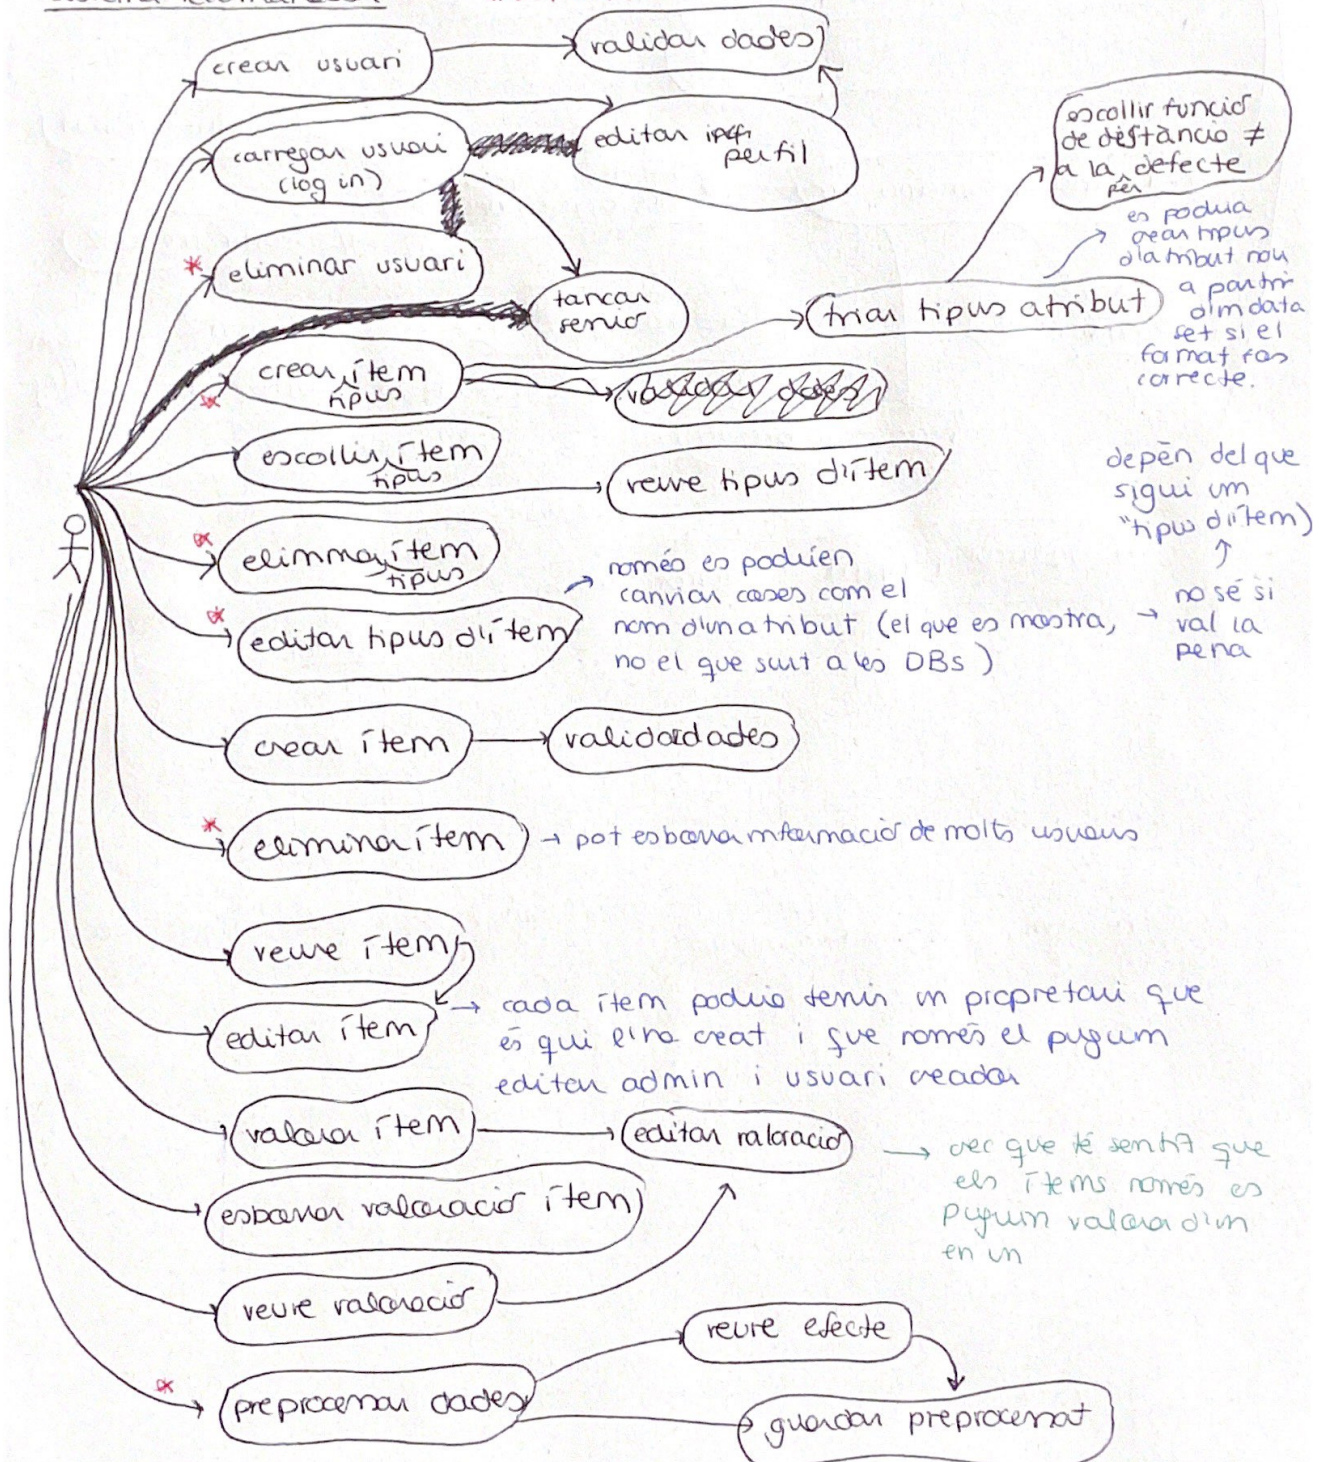 crear usuari
validar dades
carregar usuari
(log in)
editar
perfil
escollir funció
de distància ≠
a la per defecte
es podria
crear tipus
d'atribut nou
a partir
d'un data
set si el
format fos
correcte.
* eliminar usuari
tancar
sessió
triar tipus atribut
crear tipus ítem
escollir tipus ítem
veure tipus d'ítem
depèn del que
sigui un
"tipus d'ítem)
eliminar tipus ítem
només es podrien
canviar coses com el
nom d'un atribut (el que es mostra,
no el que surt a les DBs)
no sé si
val la
pena
editar tipus d'ítem
crear ítem
validar dades
* eliminar ítem
→ pot esborrar informació de molts usuaris
veure ítem
editar ítem
→ cada ítem podria tenir un propietari que
és qui l'ha creat i que només el puguin
editar admin i usuari creador
valorar ítem
editar valoració
→ crec que té sentit que
els ítems només es
puguin valorar d'un
en un
esborrar valoració ítem
veure valoració
veure efecte
preprocessar dades
guardar preprocessat